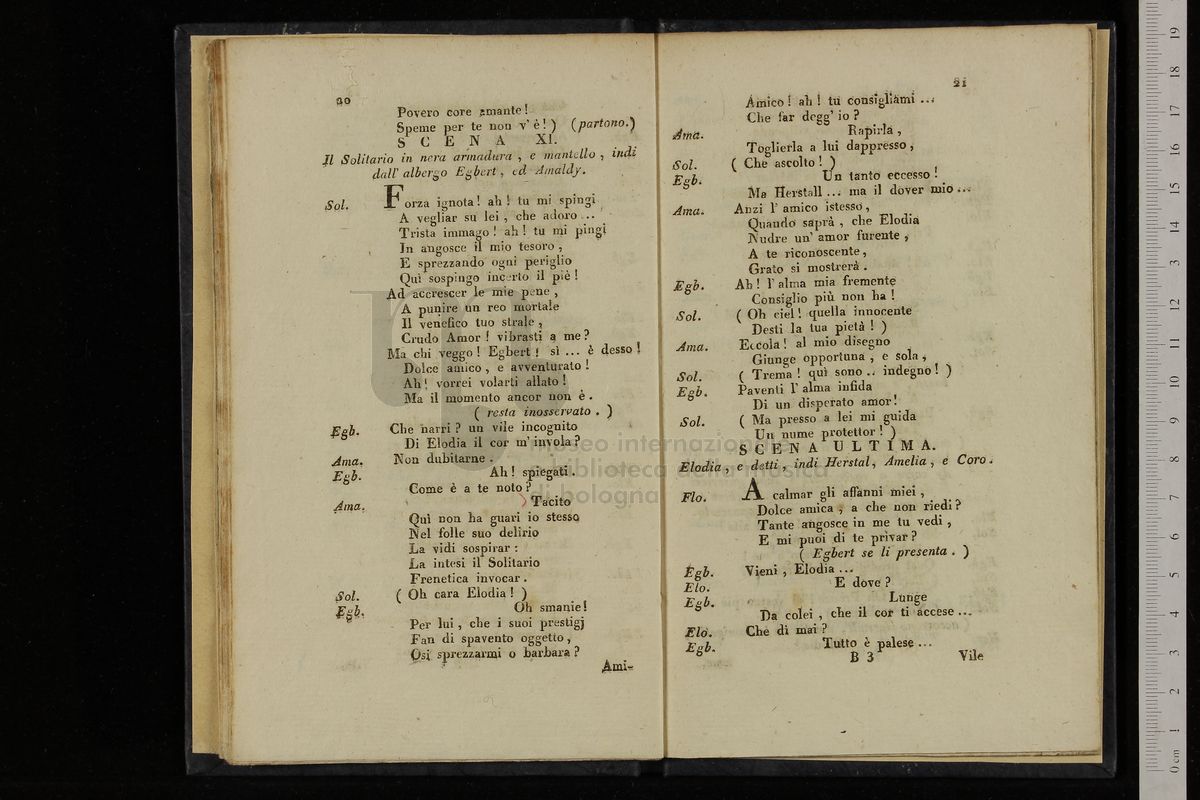 20
Povero core amante!
Speme per te non v' è! ) (partono.)
SCENA XI.
Il Solitario in nera armadura, e mantello, indi
dall' albergo Egbert, ed Amaldy.
Sol. Forza ignota! ah! tu mi spingi
A vegliar su lei, che adoro ..
Trista immago! ah! tu mi pingi
In angosce il mio tesoro,
E sprezzando ogni periglio
Quì sospingo incerto il piè!
Ad accrescer le mie pene,
A punire un reo mortale
Il venefico tuo strale,
Crudo Amor! vibrasti a me?
Ma chi veggo! Egbert! sì ... è desso!
Dolce amico, e avventurato!
Ah! vorrei volarti allato!
Ma il momento ancor non è.
( resta inosservato. )
Egb. Che narri? un vile incognito
Di Elodia il cor m' invola?
Ama. Non dubitarne.
Egb. Ah! spiegati.
Come è a te noto?
Ama. Tacito
Quì non ha guari io stesso
Nel folle suo delirio
La vidi sospirar:
La intesi il Solitario
Frenetica invocar.
Sol. ( Oh cara Elodia! )
Egb. Oh smanie!
Per lui, che i suoi prestigj
Fan di spavento oggetto,
Osi sprezzarmi o barbara?
Ami-
21
Amico! ah! tu consigliami ...
Che far degg' io?
Ama. Rapirla,
Toglierla a lui dappresso,
Sol. ( Che ascolto! )
Egb. Un tanto eccesso!
Ma Herstall ... ma il dover mio ...
Ama. Anzi l' amico istesso,
Quando saprà, che Elodia
Nudre un' amor furente,
A te riconoscente,
Grato si mostrerà.
Egb. Ah! l' alma mia fremente
Consiglio più non ha!
Sol. ( Oh ciel! quella innocente
Desti la tua pietà! )
Ama. Eccola! al mio disegno
Giunge opportuna, e sola,
Sol. ( Trema! quì sono .. indegno! )
Egb. Paventi l' alma infida
Di un disperato amor!
Sol. ( Ma presso a lei mi guida
Un nume protettor! )
SCENA ULTIMA.
Elodia, e detti, indi Herstal, Amelia, e Coro.
Flo. A calmar gli affanni miei,
Dolce amica, a che non riedi?
Tante angosce in me tu vedi,
E mi puoi di te privar?
( Egbert se li presenta. )
Egb. Vieni, Elodia ...
Elo. E dove?
Egb. Lunge
Da colei, che il cor ti accese ...
Elo. Che di mai?
Egb. Tutto è palese ...
B 3 Vile
museo internazionale
biblioteca della musica
di bologna